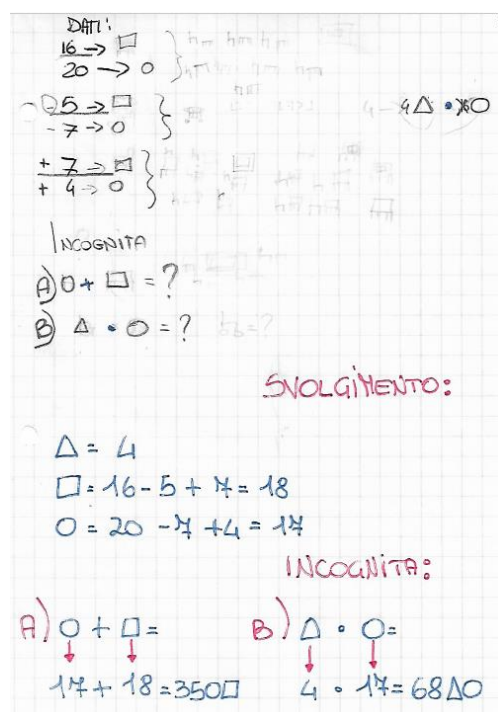 DATI:
16 → □
20 → O
- 5 → □
- 7 → O
4△ • O
+ 7 → □
+ 4 → O
INCOGNITA
A) O + □ = ?
B) △ • O = ?
SVOLGIMENTO:
△ = 4
□ = 16 - 5 + 7 = 18
O = 20 - 7 + 4 = 17
INCOGNITA:
A) O + □ =
17 + 18 = 35O□
B) △ • O =
4 • 17 = 68△O